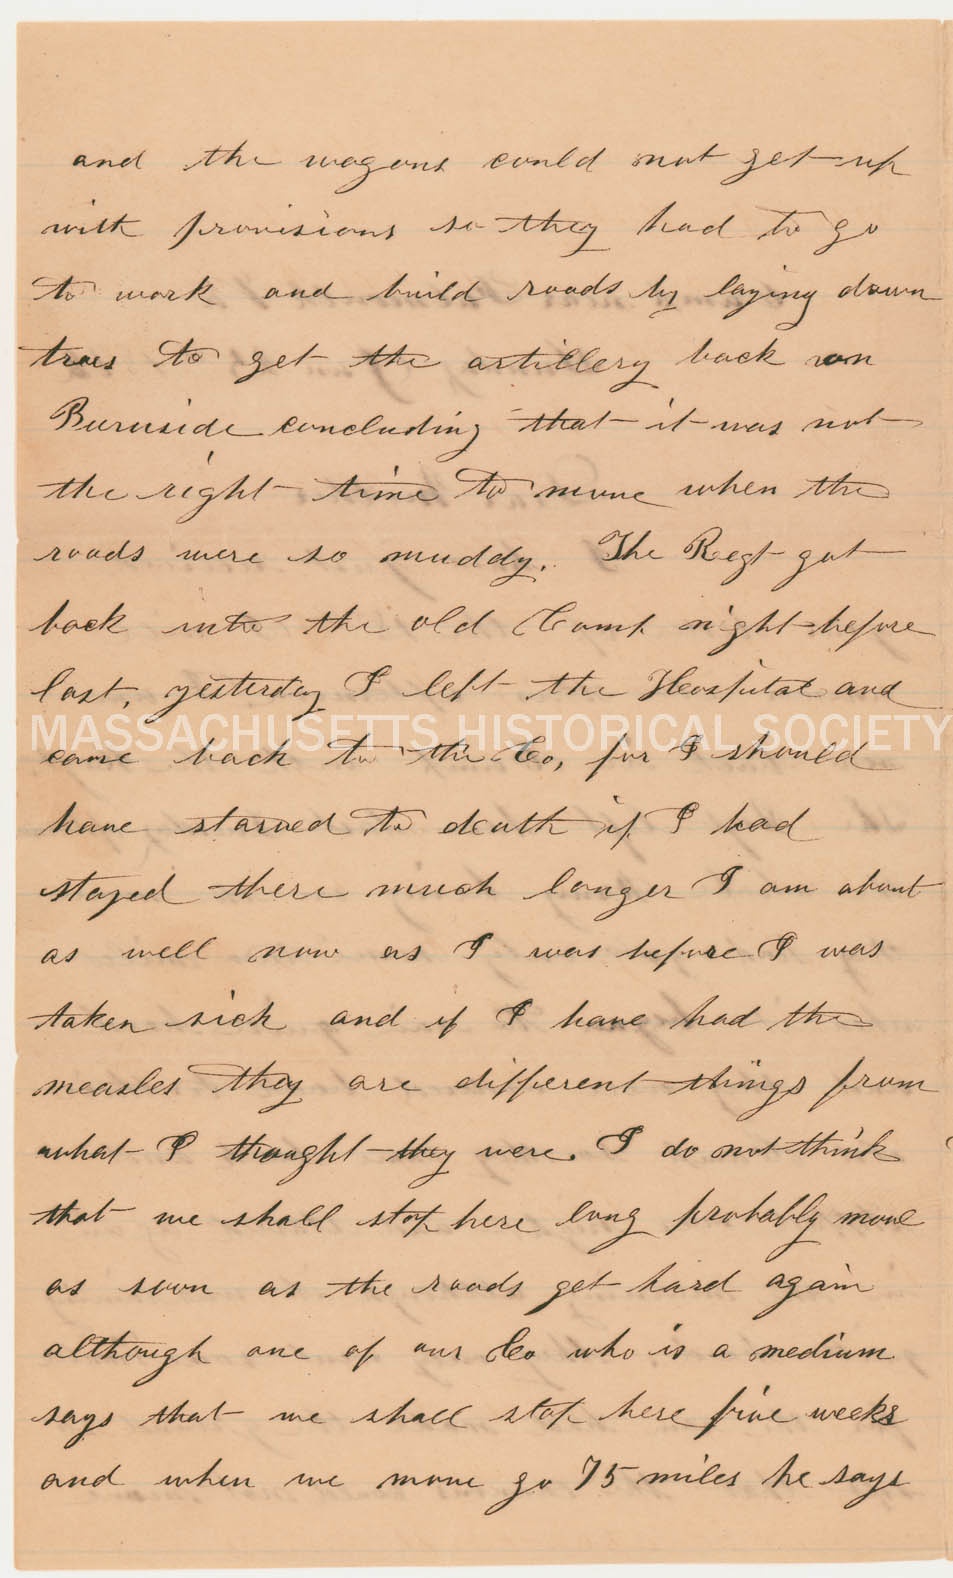 and the wagons could not get up
with provisions so they had to go
to work and build roads by laying down
trees to get the artillery back on
Burnside concluding that it was not
the right time to move when the
roads were so muddy. The Regt got
back into the old Camp night before
last, yesterday I left the Hospital and
MASSACHUSETTS HISTORICAL SOCIETY
came back to the Co, for I should
have starved to death if I had
stayed there much longer I am about
as well now as I was before I was
taken sick and if I have had the
measles they are different things from
what I thought they were. I do not think
that we shall stop here long probably move
as soon as the roads get hard again
although one of our Co who is a medium
says that we shall stop here five weeks
and when we move go 75 miles he says